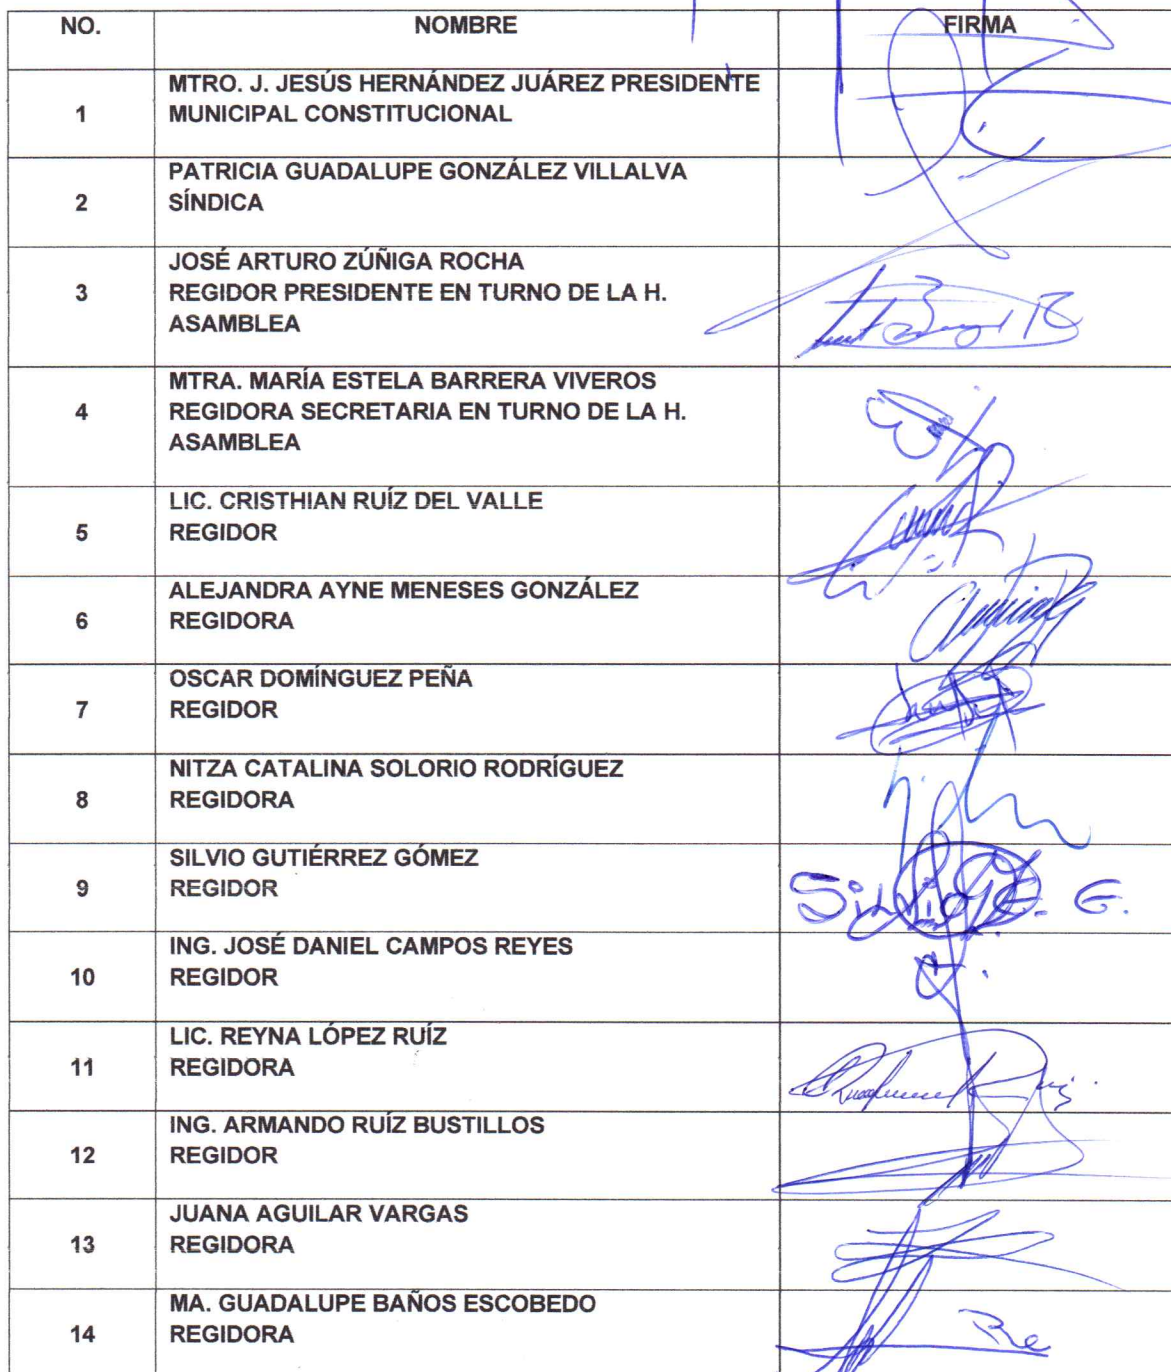 NO. NOMBRE FIRMA
MTRO. J. JESÚS HERNÁNDEZ JUÁREZ PRESIDENTE
1 MUNICIPAL CONSTITUCIONAL
PATRICIA GUADALUPE GONZÁLEZ VILLALVA
2 SÍNDICA
JOSÉ ARTURO ZÚÑIGA ROCHA
3 REGIDOR PRESIDENTE EN TURNO DE LA H.
ASAMBLEA
MTRA. MARÍA ESTELA BARRERA VIVEROS
4 REGIDORA SECRETARIA EN TURNO DE LA H.
ASAMBLEA
LIC. CRISTHIAN RUÍZ DEL VALLE
5 REGIDOR
ALEJANDRA AYNE MENESES GONZÁLEZ
6 REGIDORA
OSCAR DOMÍNGUEZ PEÑA
7 REGIDOR
NITZA CATALINA SOLORIO RODRÍGUEZ
8 REGIDORA
SILVIO GUTIÉRREZ GÓMEZ
9 REGIDOR Silvio G. G.
ING. JOSÉ DANIEL CAMPOS REYES
10 REGIDOR
LIC. REYNA LÓPEZ RUÍZ
11 REGIDORA
ING. ARMANDO RUÍZ BUSTILLOS
12 REGIDOR
JUANA AGUILAR VARGAS
13 REGIDORA
MA. GUADALUPE BAÑOS ESCOBEDO
14 REGIDORA